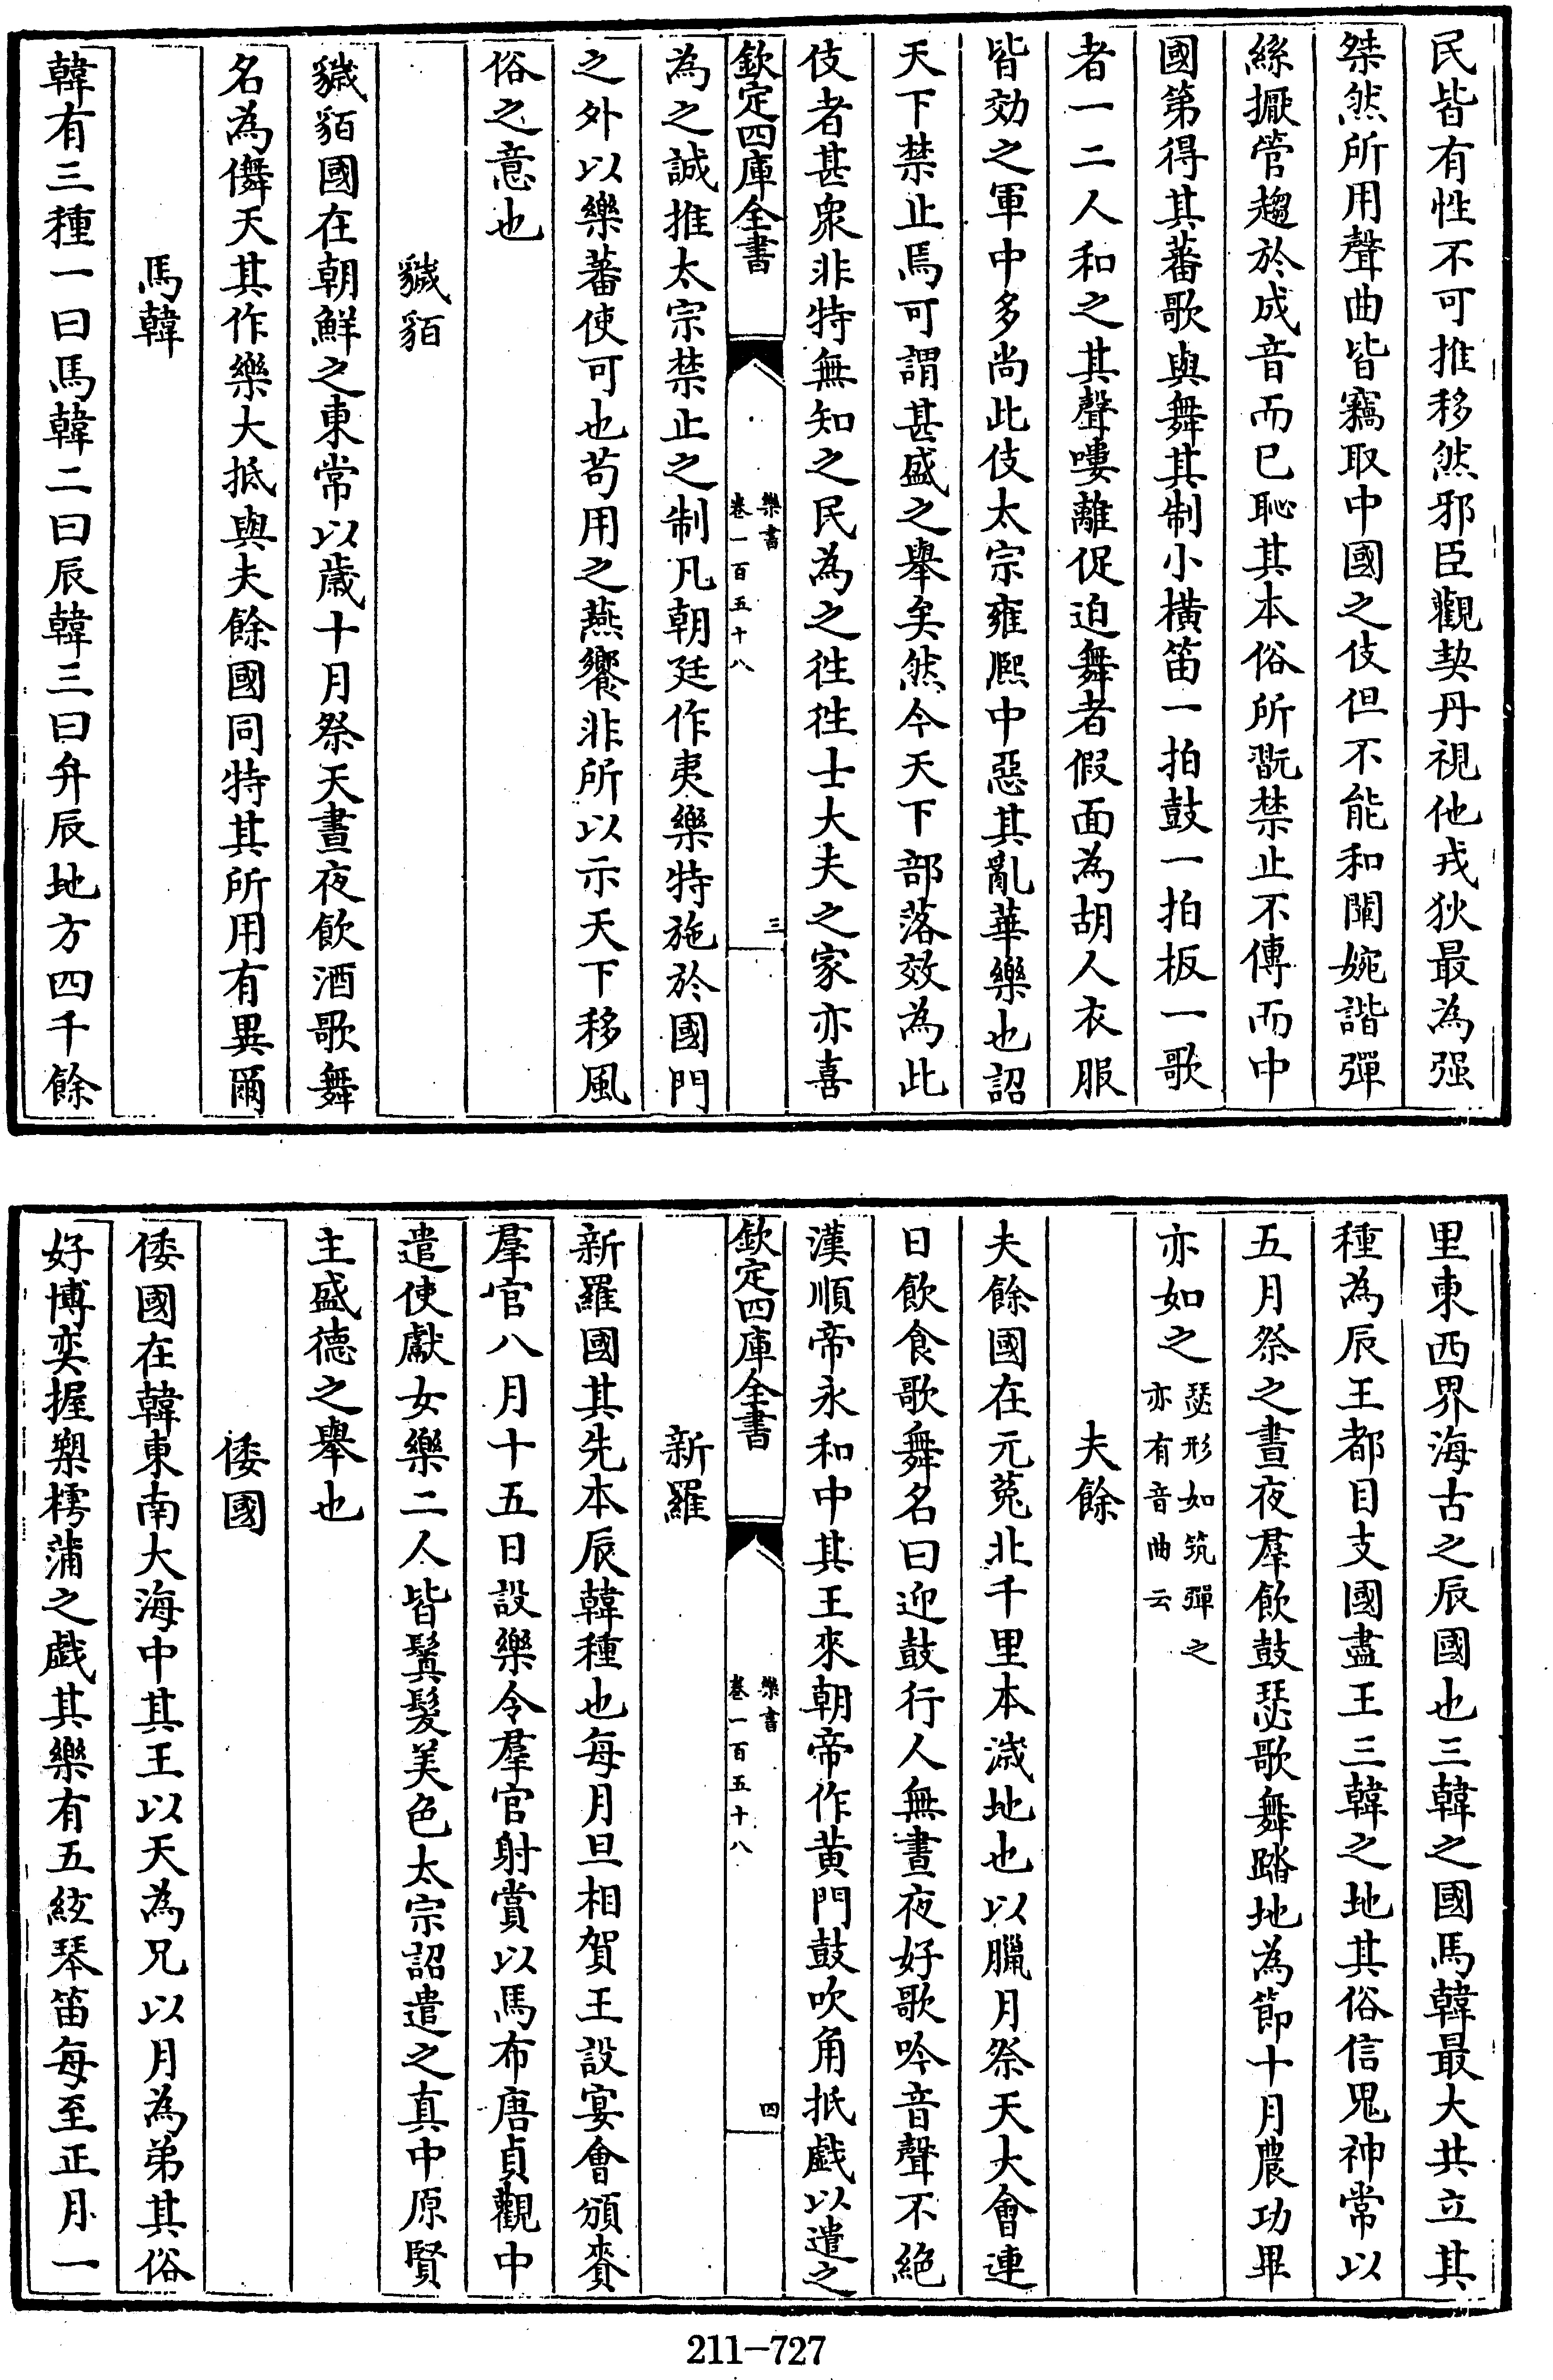 民皆有性不可推移然邪臣觀契丹視他戎狄最為强
桀然所用聲曲皆竊取中國之伎但不能和闡婉諧彈
絲擫管趨於成音而已恥其本俗所翫禁止不傳而中
國第得其蕃歌與舞其制小橫笛一拍鼓一拍板一歌
者一二人和之其聲嘍離促迫舞者假面為胡人衣服
皆効之軍中多尚此伎太宗雍熙中惡其亂華樂也詔
天下禁止焉可謂甚盛之舉矣然今天下部落效為此
伎者甚衆非特無知之民為之徃徃士大夫之家亦喜
欽定四庫全書 樂書 卷一百五十八 三
為之誠推太宗禁止之制凡朝廷作夷樂特施於國門
之外以樂蕃使可也苟用之燕饗非所以示天下移風
俗之意也
貅貊
貅貊國在朝鮮之東常以歲十月祭天晝夜飲酒歌舞
名為儛天其作樂大抵與夫餘國同特其所用有異爾
馬韓
韓有三種一曰馬韓二曰辰韓三曰弁辰地方四千餘
里東西界海古之辰國也三韓之國馬韓最大共立其
種為辰王都目支國盡王三韓之地其俗信鬼神常以
五月祭之晝夜羣飲鼓瑟歌舞踏地為節十月農功畢
亦如之 瑟形如筑彈之亦有音曲云
夫餘
夫餘國在元菟北千里本濊地也以臘月祭天大會連
日飲食歌舞名曰迎鼓行人無晝夜好歌吟音聲不絕
漢順帝永和中其王來朝帝作黄門鼓吹角抵戲以遣之
欽定四庫全書 樂書 卷一百五十八 四
新羅
新羅國其先本辰韓種也每月旦相賀王設宴會頒賚
羣官八月十五日設樂令羣官射賞以馬布唐貞觀中
遣使獻女樂二人皆鬒髮美色太宗詔遣之真中原賢
主盛德之舉也
倭國
倭國在韓東南大海中其王以天為兄以月為弟其俗
好博奕握槊樗蒲之戲其樂有五絃琴笛每至正月一
211-727